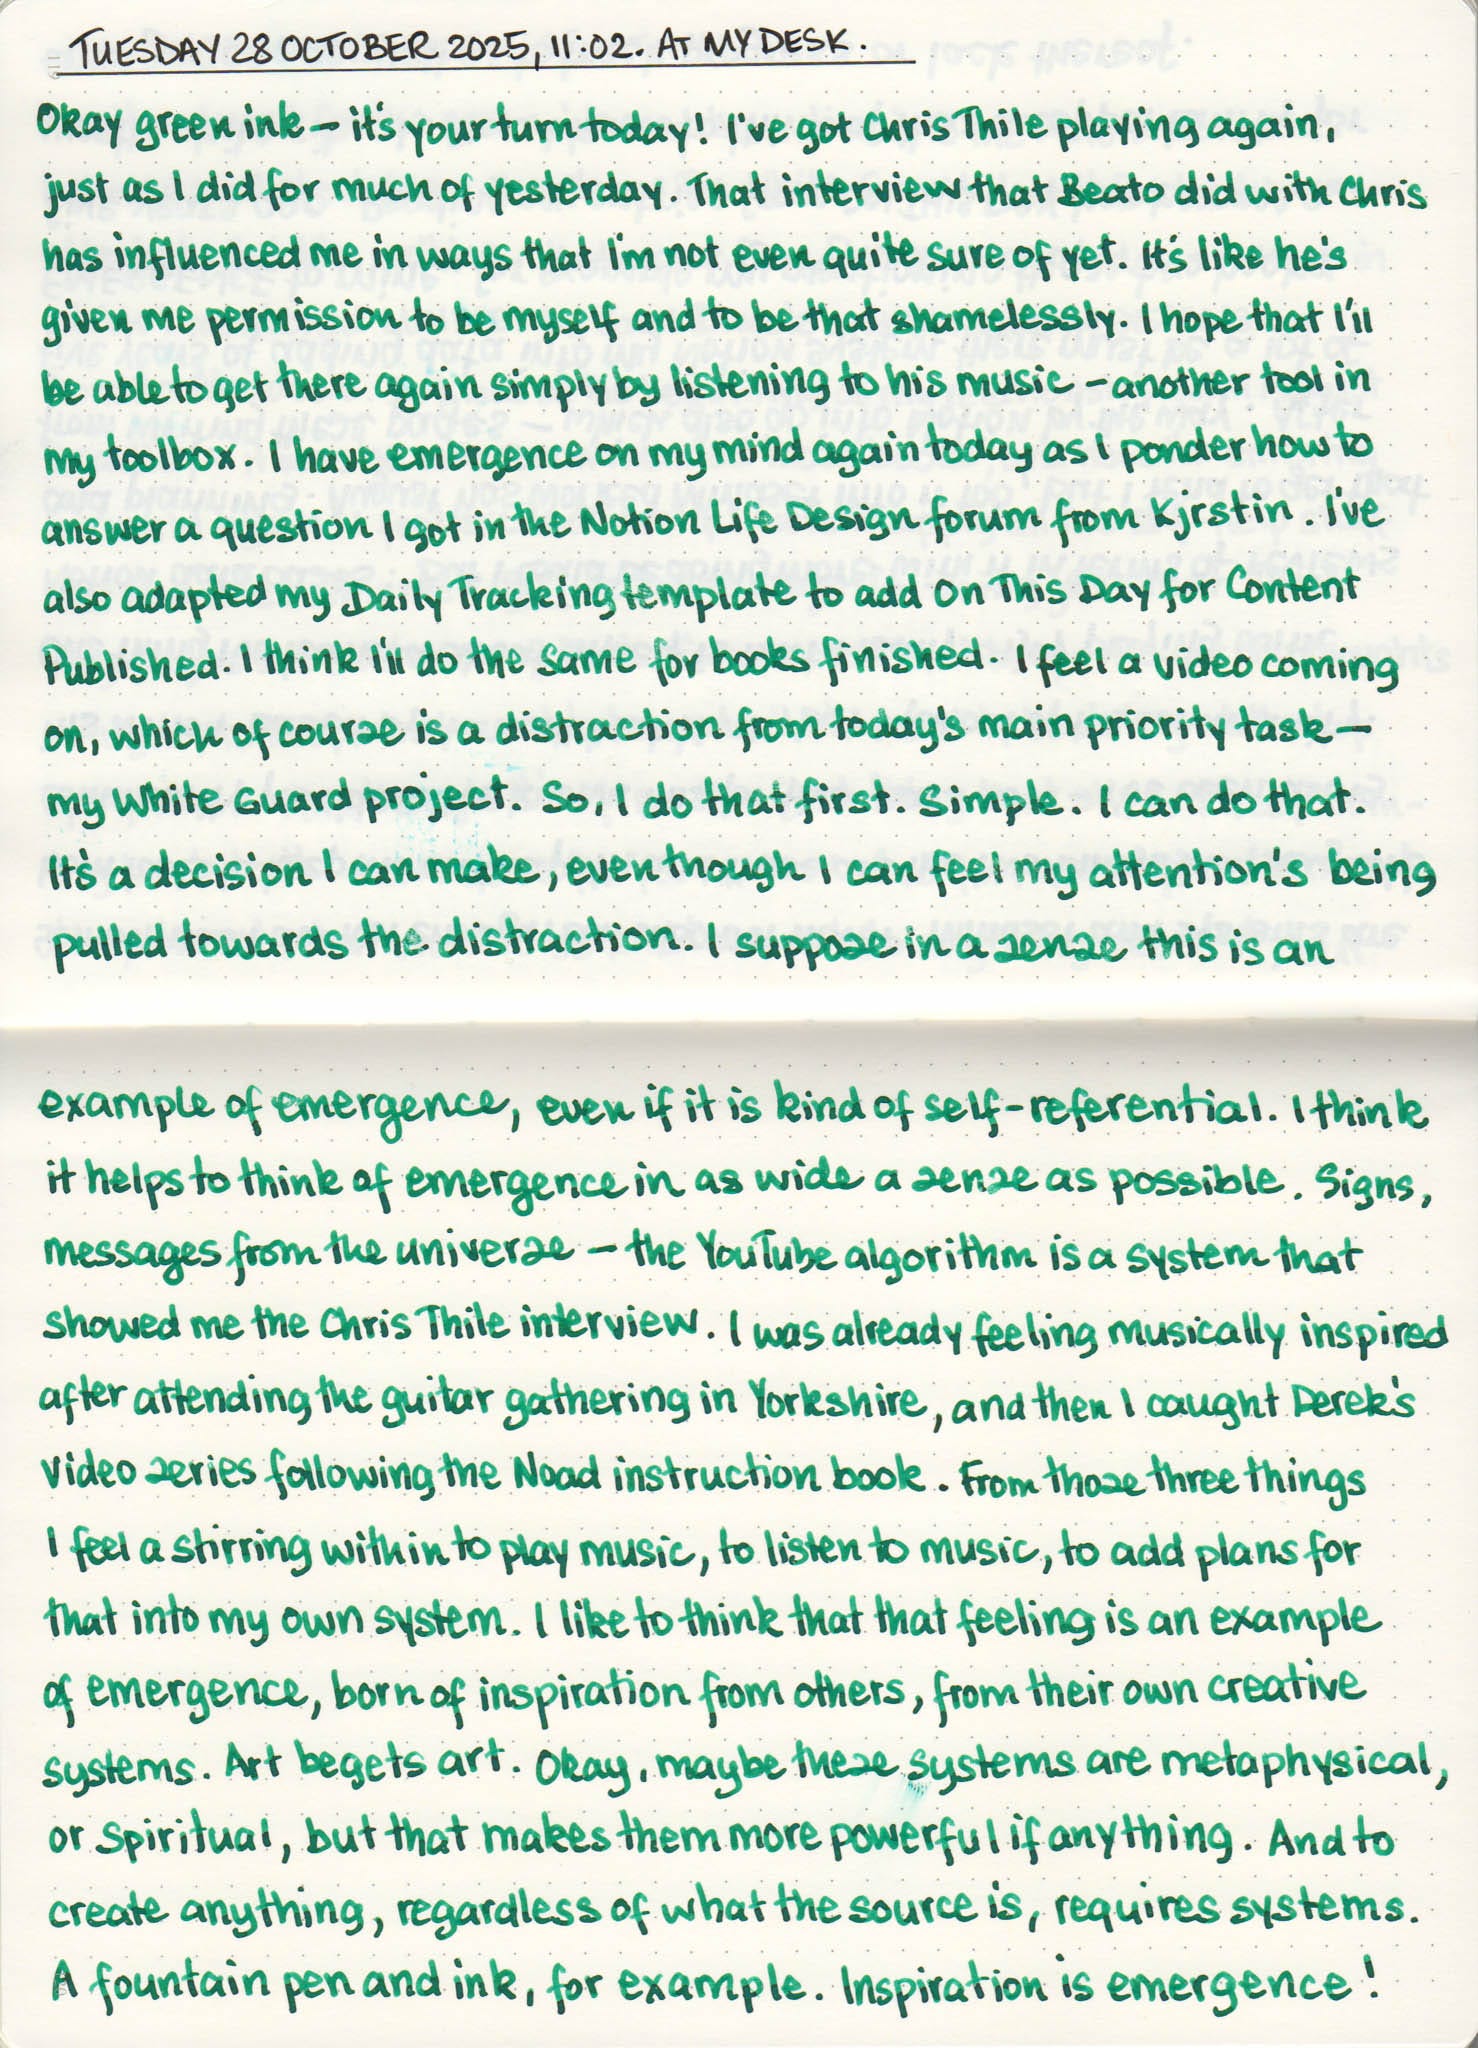 TUESDAY 28 OCTOBER 2025, 11:02. AT MY DESK.
Okay green ink – it's your turn today! I've got Chris Thile playing again,
just as I did for much of yesterday. That interview that Beato did with Chris
has influenced me in ways that I'm not even quite sure of yet. It's like he's
given me permission to be myself and to be that shamelessly. I hope that I'll
be able to get there again simply by listening to his music – another tool in
my toolbox. I have emergence on my mind again today as I ponder how to
answer a question I got in the Notion Life Design forum from Kjrstin. I've
also adapted my Daily Tracking template to add On This Day for Content
Published. I think I'll do the same for books finished. I feel a video coming
on, which of course is a distraction from today's main priority task –
my White Guard project. So, I do that first. Simple. I can do that.
It's a decision I can make, even though I can feel my attention's being
pulled towards the distraction. I suppose in a sense this is an
example of emergence, even if it is kind of self-referential. I think
it helps to think of emergence in as wide a sense as possible. Signs,
messages from the universe – the YouTube algorithm is a system that
showed me the Chris Thile interview. I was already feeling musically inspired
after attending the guitar gathering in Yorkshire, and then I caught Derek's
video series following the Noad instruction book. From those three things
I feel a stirring within to play music, to listen to music, to add plans for
that into my own system. I like to think that that feeling is an example
of emergence, born of inspiration from others, from their own creative
systems. Art begets art. Okay, maybe these systems are metaphysical,
or spiritual, but that makes them more powerful if anything. And to
create anything, regardless of what the source is, requires systems.
A fountain pen and ink, for example. Inspiration is emergence!